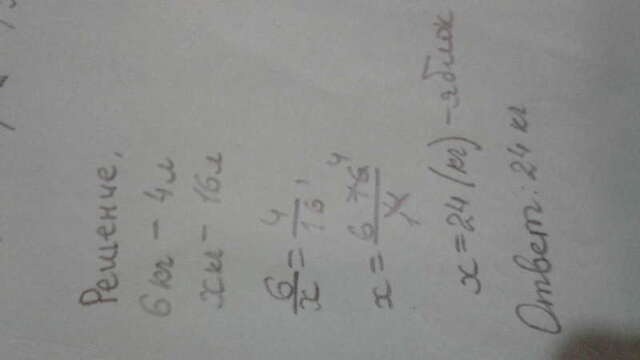 Решение,
6 кг - 4 л
x кг - 16 л
6/x = 4/16,
x = 6 16 4 / 4 1
x = 24 (кг) - яблок
Ответ: 24 кг